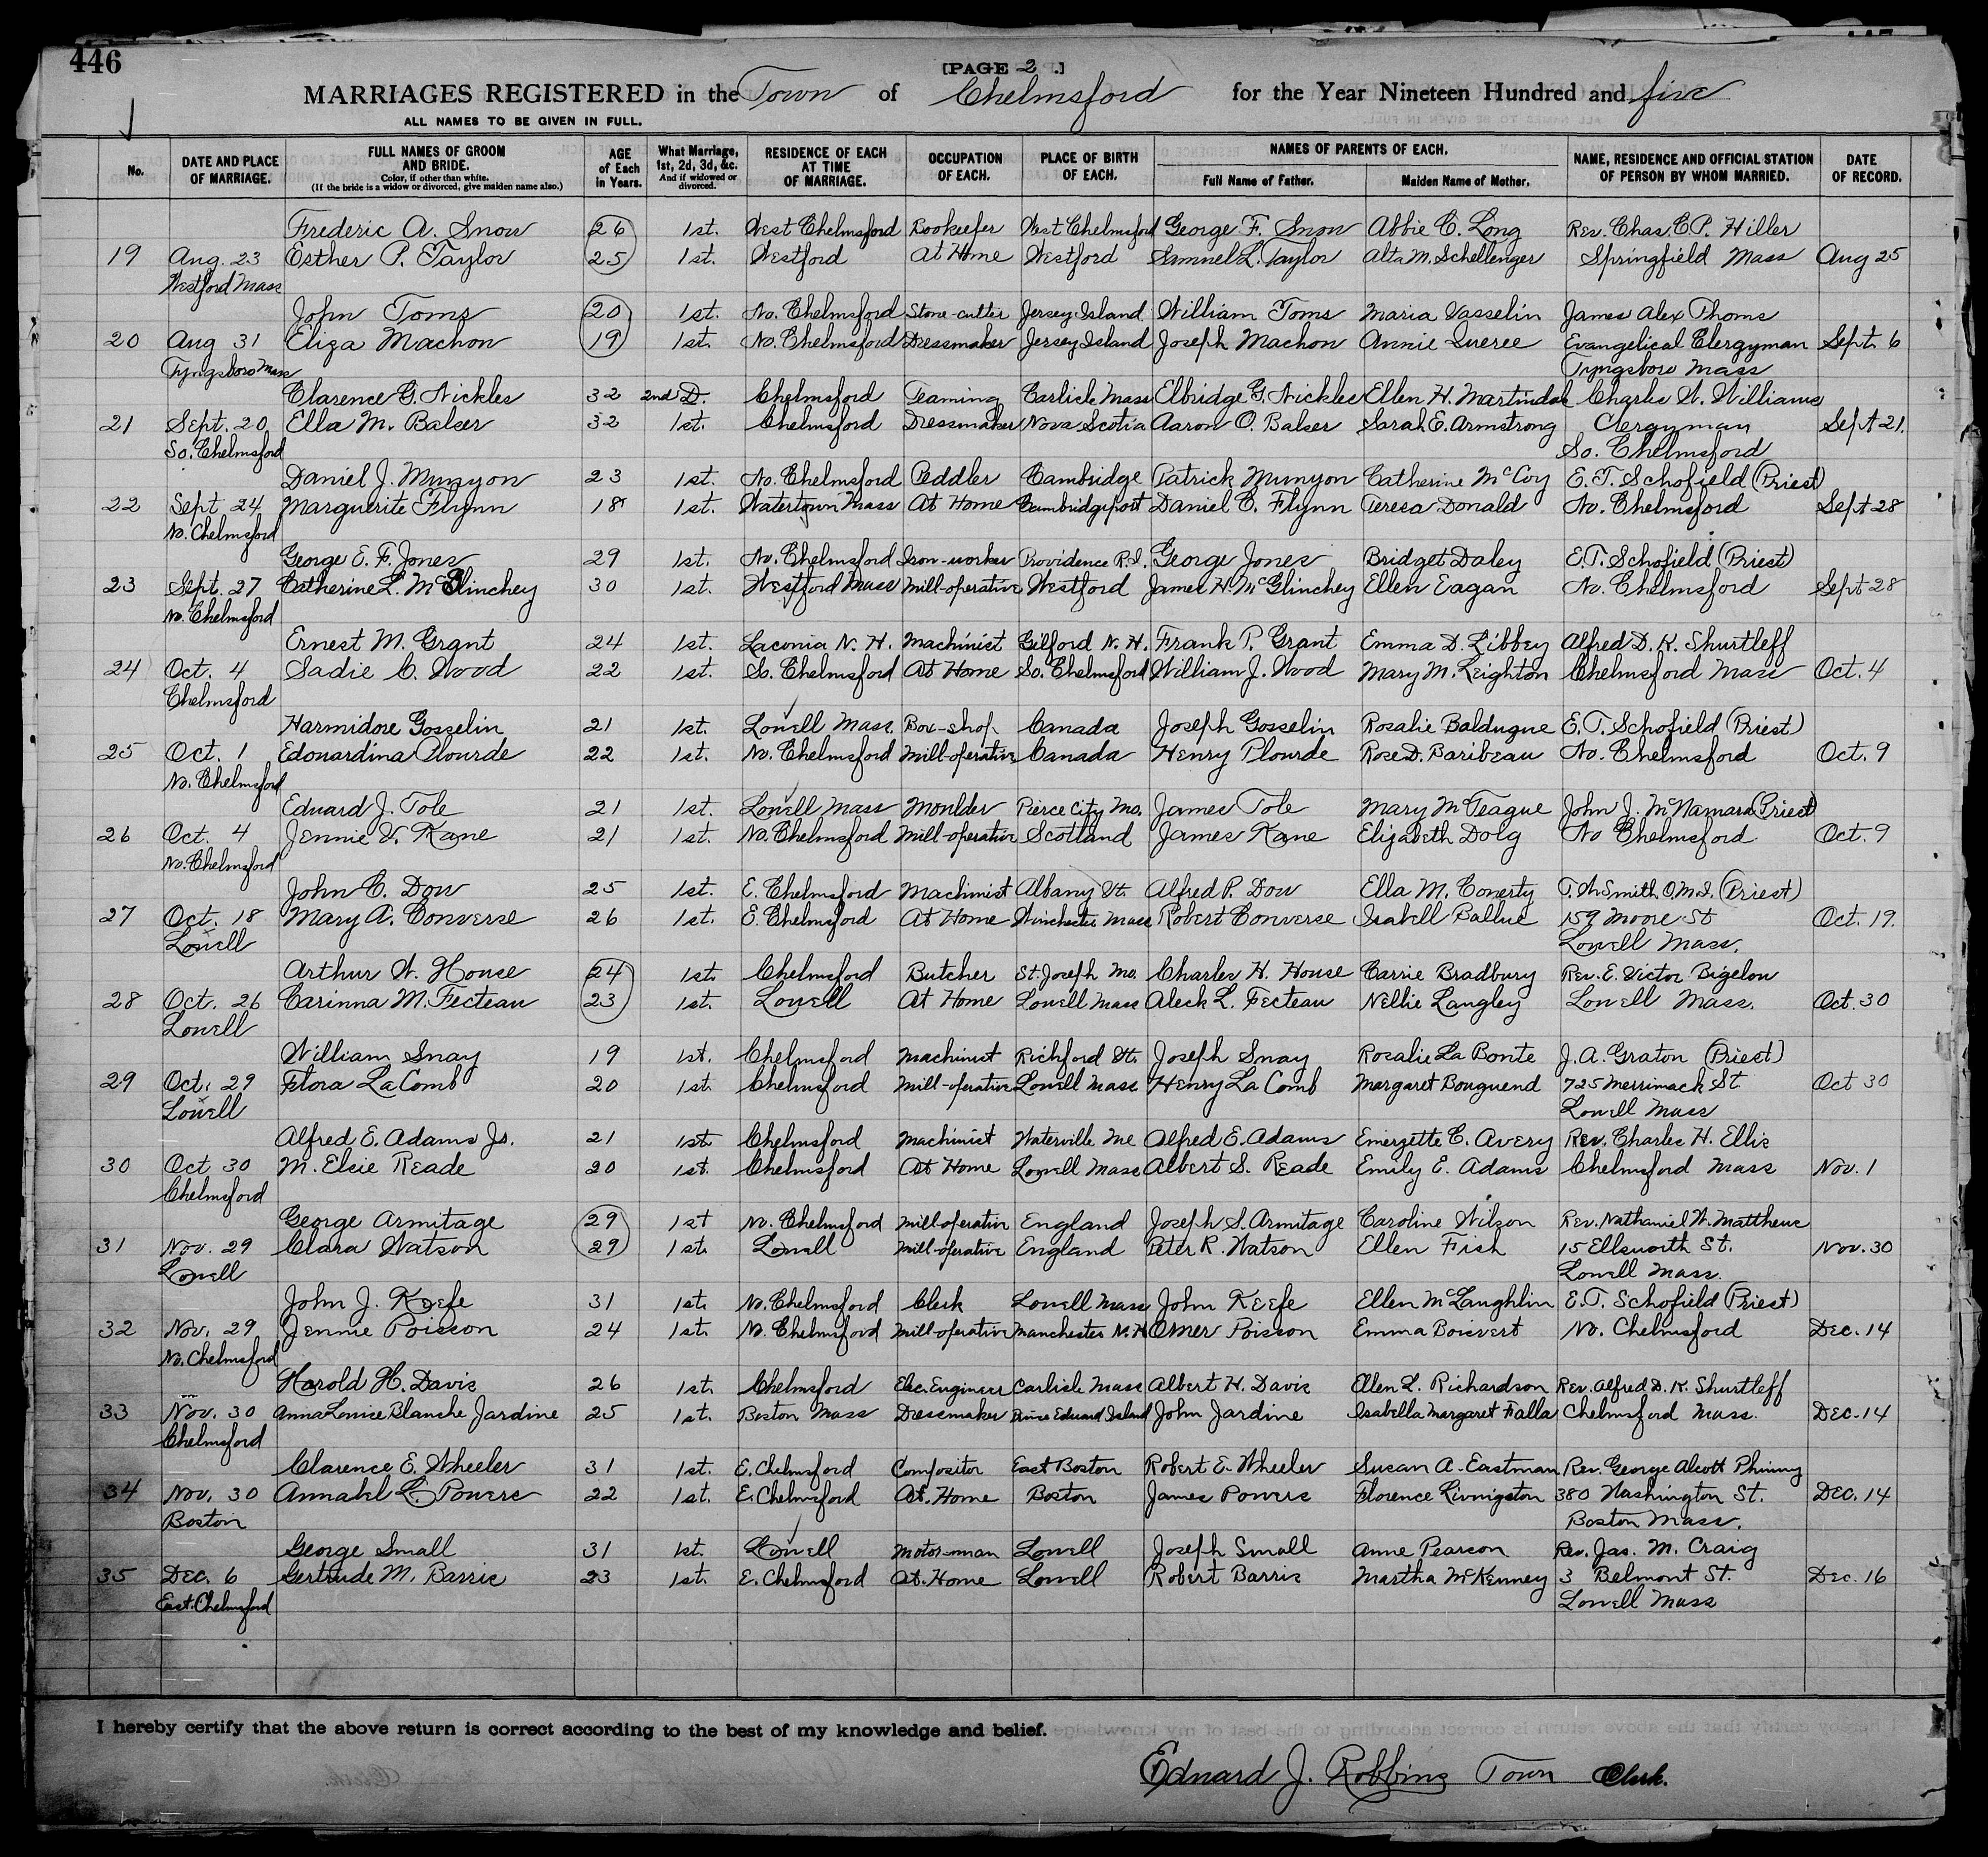 446
[PAGE 2 .]
MARRIAGES REGISTERED in the Town of Chelmsford for the Year Nineteen Hundred and five
ALL NAMES TO BE GIVEN IN FULL.
No. | DATE AND PLACE OF MARRIAGE. | FULL NAMES OF GROOM AND BRIDE. Color, if other than white. (If the bride is a widow or divorced, give maiden name also.) | AGE of Each in Years. | What Marriage, 1st, 2d, 3d, &c. And if widowed or divorced. | RESIDENCE OF EACH AT TIME OF MARRIAGE. | OCCUPATION OF EACH. | PLACE OF BIRTH OF EACH. | NAMES OF PARENTS OF EACH. Full Name of Father. | Maiden Name of Mother. | NAME, RESIDENCE AND OFFICIAL STATION OF PERSON BY WHOM MARRIED. | DATE OF RECORD.
Frederic A. Snow 26 1st. West Chelmsford Bookeefer West Chelmsford George F. Snow Abbie C. Long Rev. Chas. E. P. Hiller
19 Aug. 23 Esther P. Taylor 25 1st. Westford At Home Westford Samuel L. Taylor Alta M. Schellenger Springfield Mass Aug 25
Westford Mass
John Toms 20 1st. No. Chelmsford Stone-cutter Jersey Island William Toms Maria Vasselin James Alex Thoms
20 Aug 31 Eliza Machon 19 1st. No. Chelmsford Dressmaker Jersey Island Joseph Machon Annie Queree Evangelical Clergyman Sept. 6
Tyngsboro Mass Tyngsboro Mass
Clarence G. Nickles 32 2nd D. Chelmsford Teaming Carlisle Mass Elbridge G. Nickles Ellen H. Martindale Charles W. Williams
21 Sept. 20 Ella M. Balser 32 1st. Chelmsford Dressmaker Nova Scotia Aaron O. Balser Sarah E. Armstrong Clergyman Sept 21.
So. Chelmsford So. Chelmsford
Daniel J. Munyon 23 1st. No. Chelmsford Peddler Cambridge Patrick Munyon Catherine McCoy E. T. Schofield (Priest)
22 Sept 24 Marguerite Flynn 18 1st. Watertown Mass At Home Cambridgeport Daniel C. Flynn Teresa Donald No. Chelmsford Sept 28
No. Chelmsford
George E. F. Jones 29 1st. No. Chelmsford Iron-worker Providence R.I. George Jones Bridget Daley E. T. Schofield (Priest)
23 Sept. 27 Catherine L. McGlinchey 30 1st. Westford Mass Mill-operative Westford James H. McGlinchey Ellen Eagan No. Chelmsford Sept 28
No. Chelmsford
Ernest M. Grant 24 1st. Laconia N. H. Machinist Gilford N. H. Frank P. Grant Emma D. Libbey Alfred D. K. Shurtleff
24 Oct. 4 Sadie C. Wood 22 1st. So. Chelmsford At Home So. Chelmsford William J. Wood Mary M. Leighton Chelmsford Mass Oct. 4
Chelmsford
Harmidore Gosselin 21 1st. Lowell Mass. Box-shop Canada Joseph Gosselin Rosalie Baldugue E. T. Schofield (Priest)
25 Oct. 1 Edouardina Plourde 22 1st. No. Chelmsford Mill-operative Canada Henry Plourde Rose D. Baribeau No. Chelmsford Oct. 9
No. Chelmsford
Edward J. Tole 21 1st. Lowell Mass Moulder Pierce City Mo. James Tole Mary McTeague John J. McNamara (Priest)
26 Oct. 4 Jennie V. Kane 21 1st. No. Chelmsford Mill-operative Scotland James Kane Elizabeth Doig No Chelmsford Oct. 9
No. Chelmsford
John C. Dow 25 1st. E. Chelmsford Machinist Albany Vt. Alfred P. Dow Ella M. Conerty T. W. Smith O.M.I. (Priest)
27 Oct. 18 Mary A. Converse 26 1st. E. Chelmsford At Home Winchester Mass Robert Converse Isabell Ballue 159 Moore St Oct. 19.
Lowell Lowell Mass.
Arthur W. House 24 1st. Chelmsford Butcher St. Joseph Mo. Charles H. House Carrie Bradbury Rev. E. Victor Bigelow
28 Oct. 26 Carinna M. Fecteau 23 1st. Lowell At Home Lowell Mass Aleck L. Fecteau Nellie Langley Lowell Mass. Oct. 30
Lowell
William Snay 19 1st. Chelmsford Machinist Richford Vt. Joseph Snay Rosalie La Bonte J. A. Graton (Priest)
29 Oct. 29 Flora LaComb 20 1st. Chelmsford Mill-operative Lowell Mass Henry La Comb Margaret Bouguend 725 Merrimack St Oct 30
Lowell Lowell Mass
Alfred E. Adams Jr. 21 1st. Chelmsford Machinist Waterville Me Alfred E. Adams Emerzette C. Avery Rev. Charles H. Ellis
30 Oct 30 M. Elsie Reade 20 1st. Chelmsford At Home Lowell Mass Albert S. Reade Emily E. Adams Chelmsford Mass Nov. 1
Chelmsford
George Armitage 29 1st No. Chelmsford Mill-operative England Joseph S. Armitage Caroline Wilson Rev. Nathaniel W. Matthews
31 Nov. 29 Clara Watson 29 1st. Lowell Mill-operative England Peter R. Watson Ellen Fish 15 Ellsworth St. Nov. 30
Lowell Lowell Mass.
John J. Keefe 31 1st. No. Chelmsford Clerk Lowell Mass John Keefe Ellen McLaughlin E. T. Schofield (Priest)
32 Nov. 29 Jennie Poisson 24 1st. No. Chelmsford Mill-operative Manchester N. H Omer Poisson Emma Boisvert No. Chelmsford Dec. 14
No. Chelmsford
Harold H. Davis 26 1st. Chelmsford Elec. Engineer Carlisle Mass Albert H. Davis Ellen L. Richardson Rev. Alfred D. K. Shurtleff
33 Nov. 30 Anna Louise Blanche Jardine 25 1st. Boston Mass Dressmaker Prince Edward Island John Jardine Isabella Margaret Falla Chelmsford Mass. Dec. 14
Chelmsford
Clarence E. Wheeler 31 1st. E. Chelmsford Compositor East Boston Robert E. Wheeler Susan A. Eastman Rev. George Alcott Phinney
34 Nov. 30 Annabel L. Powers 22 1st. E. Chelmsford At. Home Boston James Powers Florence Livingston 380 Washington St. Dec. 14
Boston Boston Mass.
George Small 31 1st. Lowell Motor-man Lowell Joseph Small Anne Pearson Rev. Jas. M. Craig
35 Dec. 6 Gertrude M. Barris 23 1st. E. Chelmsford At. Home Lowell Robert Barris Martha McKenney 3 Belmont St. Dec. 16
East. Chelmsford Lowell Mass
I hereby certify that the above return is correct according to the best of my knowledge and belief.
Edward J. Robbins Town Clerk.